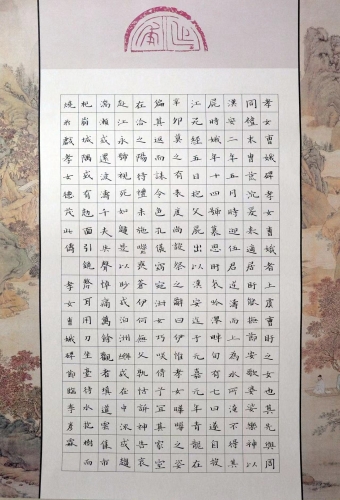 孝女曹娥碑孝女曹娥者上虞曹盱之女也其先與周
同祖末胄荒沉爰來適居盱能撫節安歌婆娑樂神以
漢安二年五月時迎伍君逆濤而上為水所淹不得其
屍時娥年十四號慕思盱哀吟澤畔旬有七日遂自投
江死經五日抱父屍出以漢安迄于元嘉元年青龍在
辛卯莫之有表度尚設祭之辭曰伊惟孝女曄曄之姿
偏其返而令色孔儀窈窕淑女巧笑倩兮宜其家室
在洽之陽待禮未施嗟喪蒼伊何無父孰怙訴神告哀
赴江永號視死如歸是以眇或泊洲嶼或在中流或趨
湍瀨或還波濤千夫失聲悼痛萬餘觀者填道雲集市
杞崩城隅或有剋面引鏡剺耳用刀坐臺待水抱樹而
燒於戲孝女德茂此儔 孝女曹娥碑節臨李彥霖